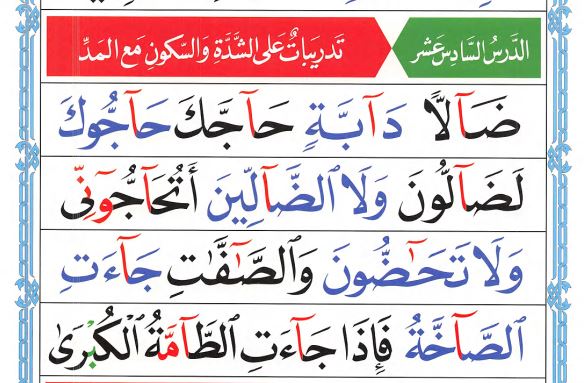 الدَّرسُ السَّادِس عَشر
تَدريبَاتٌ عَلى الشَّدَّةِ وَالسّكونِ مَع المَدِّ
ضَآلًّا دَآبَّةٍ حَآجَّكَ حَآجُّوكَ
لَضَآلُّونَ وَلَا ٱلضَّآلِّينَ أَتُحَآجُّوٓنِّى
وَلَا تَحَٰٓضُّونَ وَٱلصَّٰٓفَّٰتِ جَآءَتِ
ٱلصَّآخَّةُ فَإِذَا جَآءَتِ ٱلطَّآمَّةُ ٱلْكُبْرَىٰ